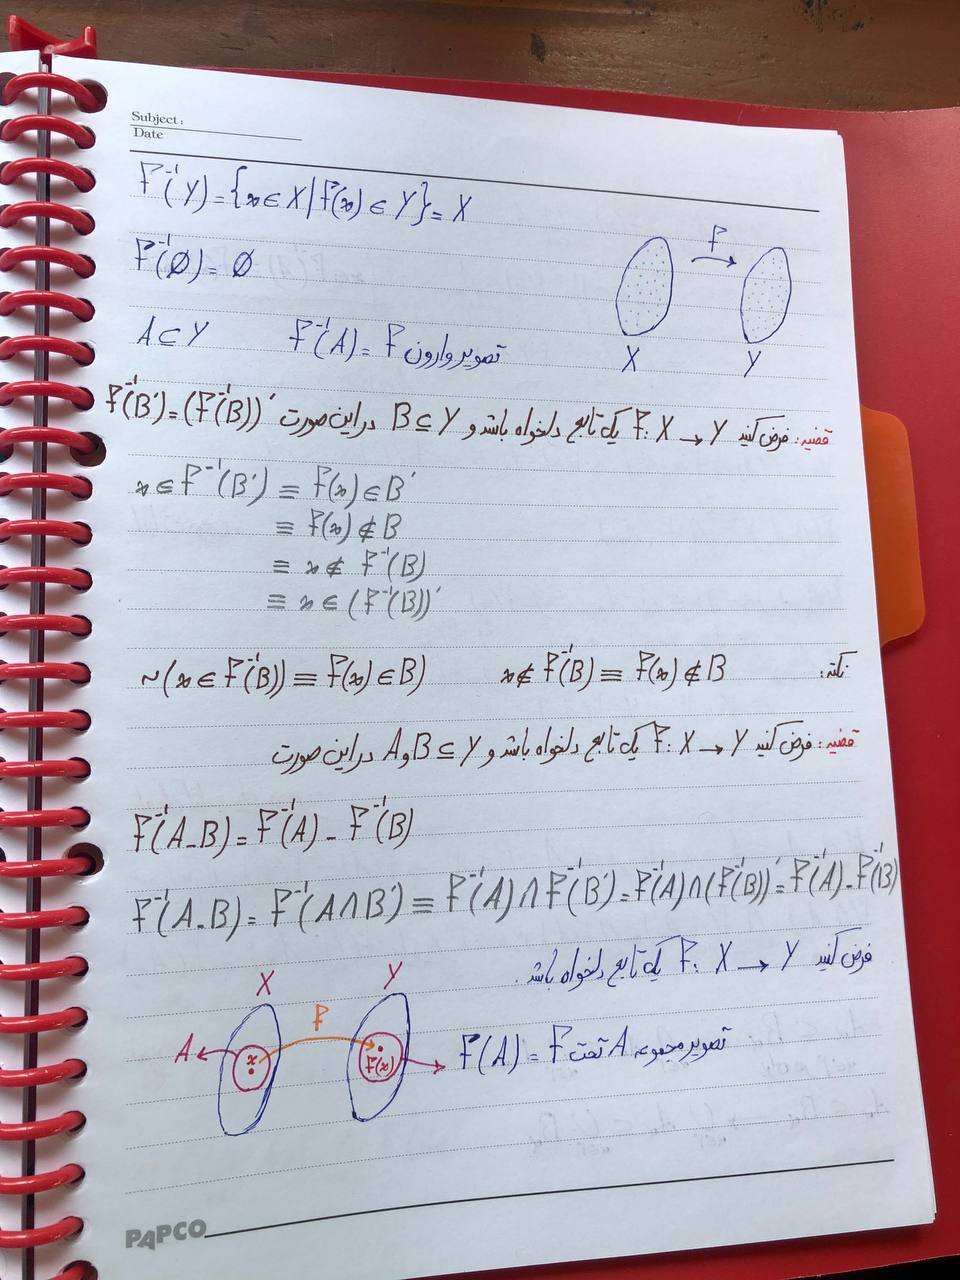 Subject:
Date
f⁻¹(Y) = {x ∈ X | f(x) ∈ Y} = X
f⁻¹(∅) = ∅
f
X Y
A ⊂ Y f⁻¹(A) = تصویر وارون f
قضیه: فرض کنید f: X → Y یک تابع دلخواه باشد و B ⊆ Y در این صورت f⁻¹(B′) = (f⁻¹(B))′
x ∈ f⁻¹(B′) ≡ f(x) ∈ B′
≡ f(x) ∉ B
≡ x ∉ f⁻¹(B)
≡ x ∈ (f⁻¹(B))′
نکته: x ∉ f⁻¹(B) ≡ f(x) ∉ B ~(x ∈ f⁻¹(B)) ≡ f(x) ∈ B)
قضیه: فرض کنید f: X → Y یک تابع دلخواه باشد و A و B ⊆ Y در این صورت
f⁻¹(A - B) = f⁻¹(A) - f⁻¹(B)
f⁻¹(A - B) = f⁻¹(A ∩ B′) ≡ f⁻¹(A) ∩ f⁻¹(B′) = f⁻¹(A) ∩ (f⁻¹(B))′ = f⁻¹(A) - f⁻¹(B)
فرض کنید f: X → Y یک تابع دلخواه باشد.
X Y
f
A x f(x)
f(A) = تصویر مجموعه A تحت f
PAPCO